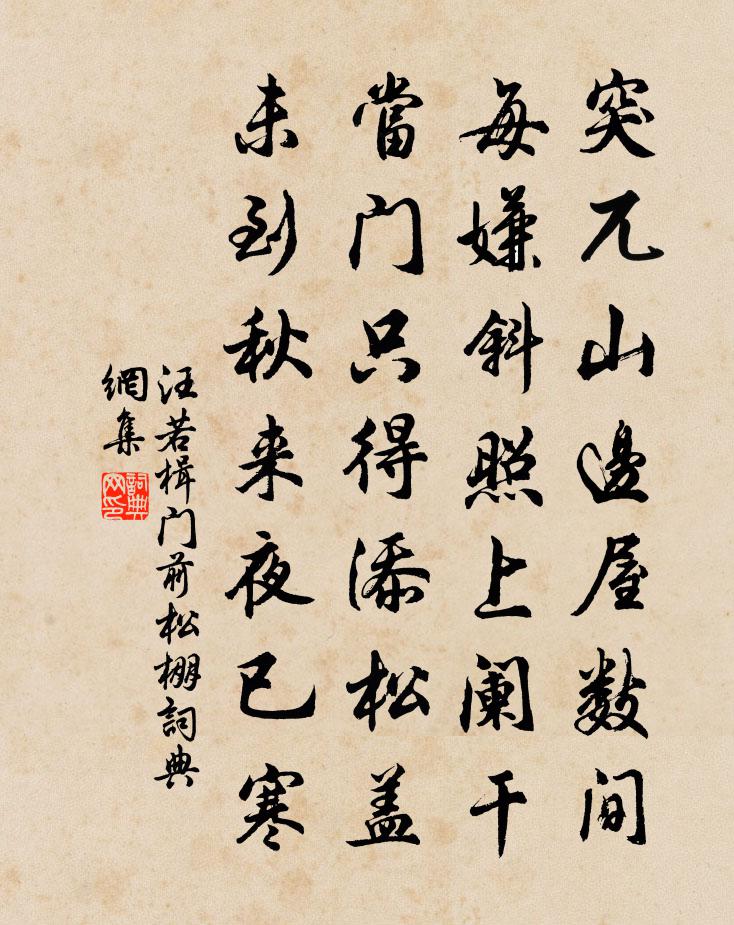 突兀山邊屋数间
每嫌斜照上阑干
當门只得添松盖
未到秋来夜已寒
汪若楫门前松棚詞典
網集
詞典网印